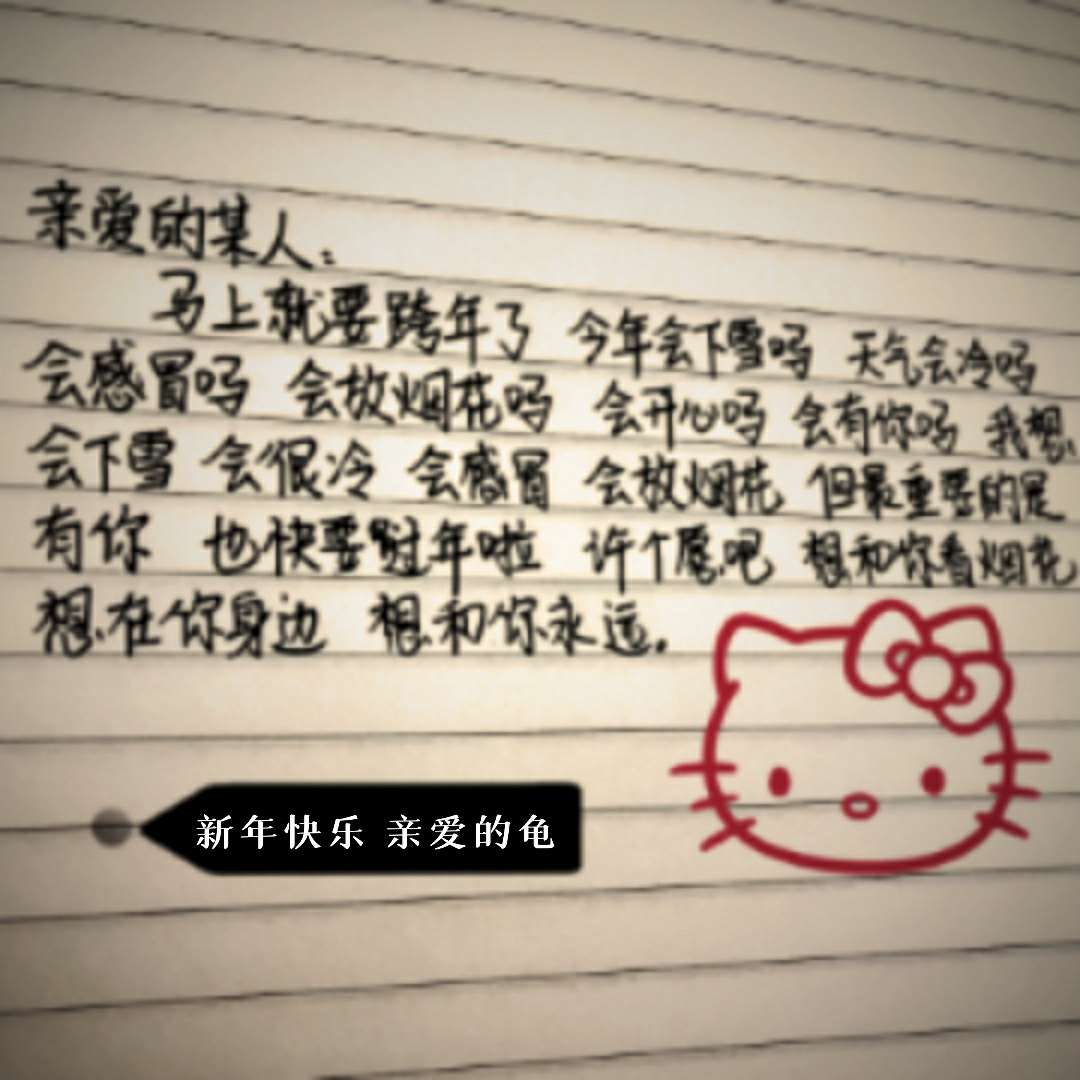 亲爱的某人:
马上就要跨年了 今年会下雪吗 天气会冷吗
会感冒吗 会放烟花吗 会开心吗 会有你吗 我想
会下雪 会很冷 会感冒 会放烟花 但最重要的是
有你 也快要过年啦 许个愿吧 想和你看烟花
想在你身边 想和你永远.
新年快乐 亲爱的龟